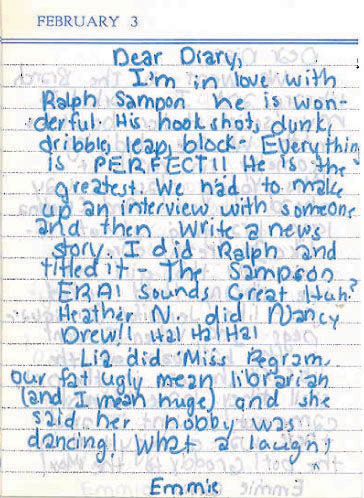 FEBRUARY 3
Dear Diary,
I'm in love with
Ralph Sampon he is won-
derful. His hook shots, dunk,
dribble, leap, block- Everything
is PERFECT!! He is the
greatest. We had to make
up an interview with someone
and then write a news
story. I did Ralph and
titled it - The Sampson
ERA! Sounds Great Huh?
Heather N. did Nancy
Drew!! Ha! Ha! Ha!
Lia did Miss Pegram,
our fat ugly mean librarian
(and I mean huge) and she
said her hobby was
dancing! What a laugh!
Emmie